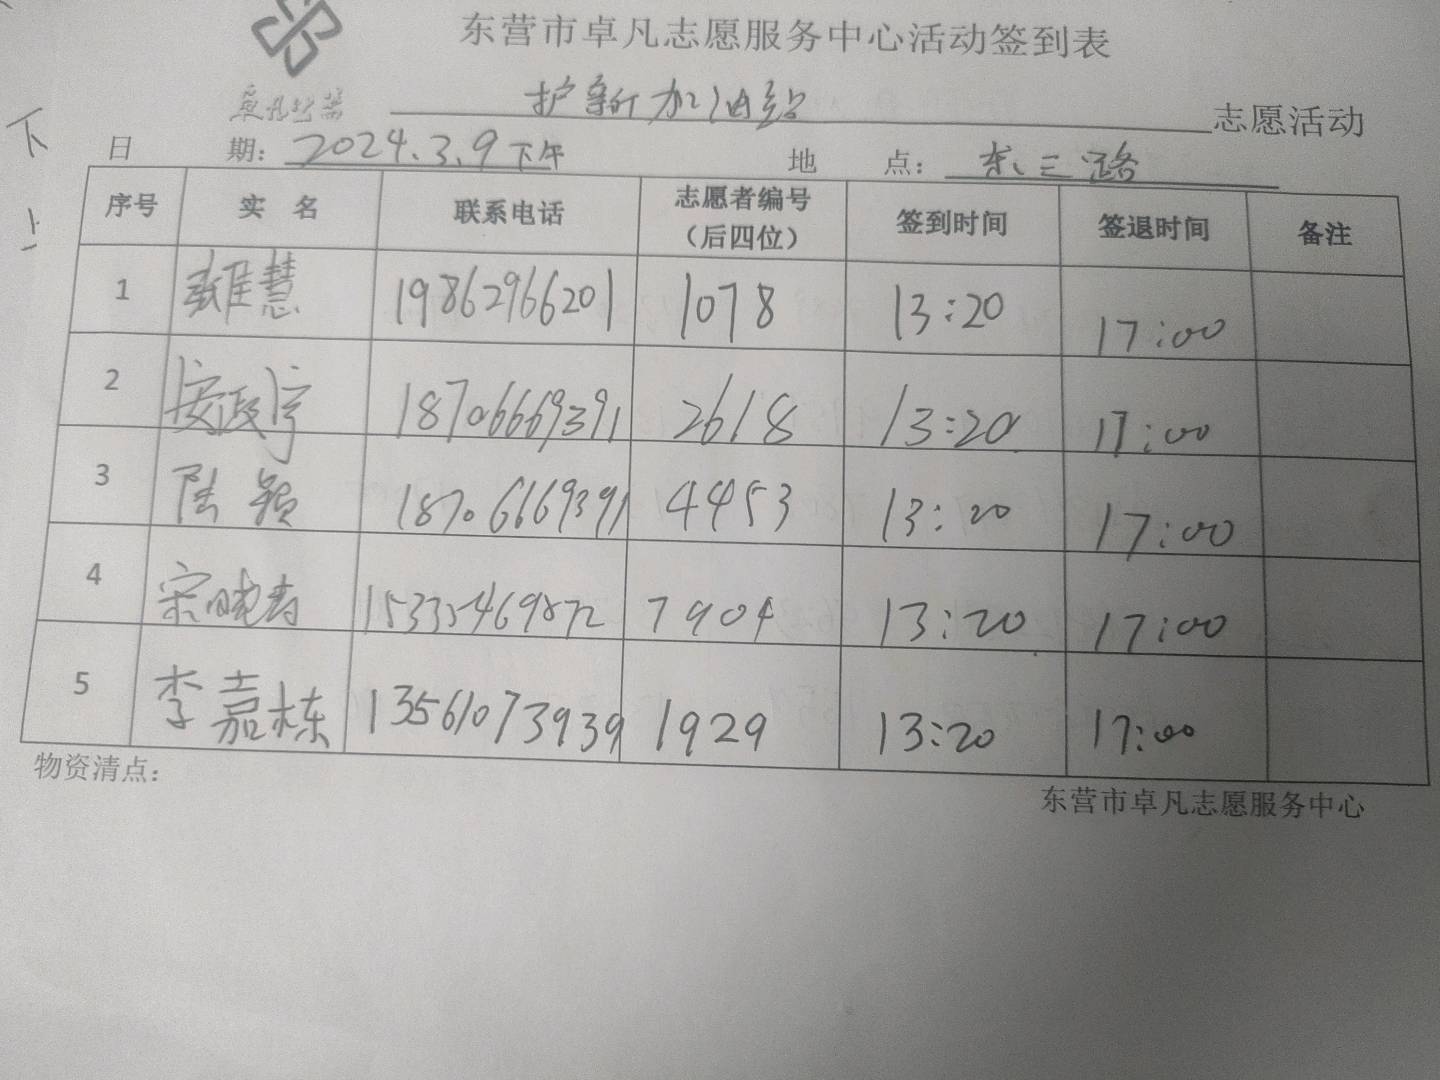 东营市卓凡志愿服务中心活动签到表
卓凡公益
护新加油站 志愿活动
下
日 期：2024.3.9下午 地 点：东三路
上
序号 实 名 联系电话 志愿者编号（后四位） 签到时间 签退时间 备注
1 慧 19862966201 1078 13:20 17:00
2 安政宇 18706669391 2618 13:20 17:00
3 陆颖 18706669391 4453 13:20 17:00
4 宋晓寿 15335469872 7904 13:20 17:00
5 李嘉栋 13561073939 1929 13:20 17:00
物资清点：
东营市卓凡志愿服务中心